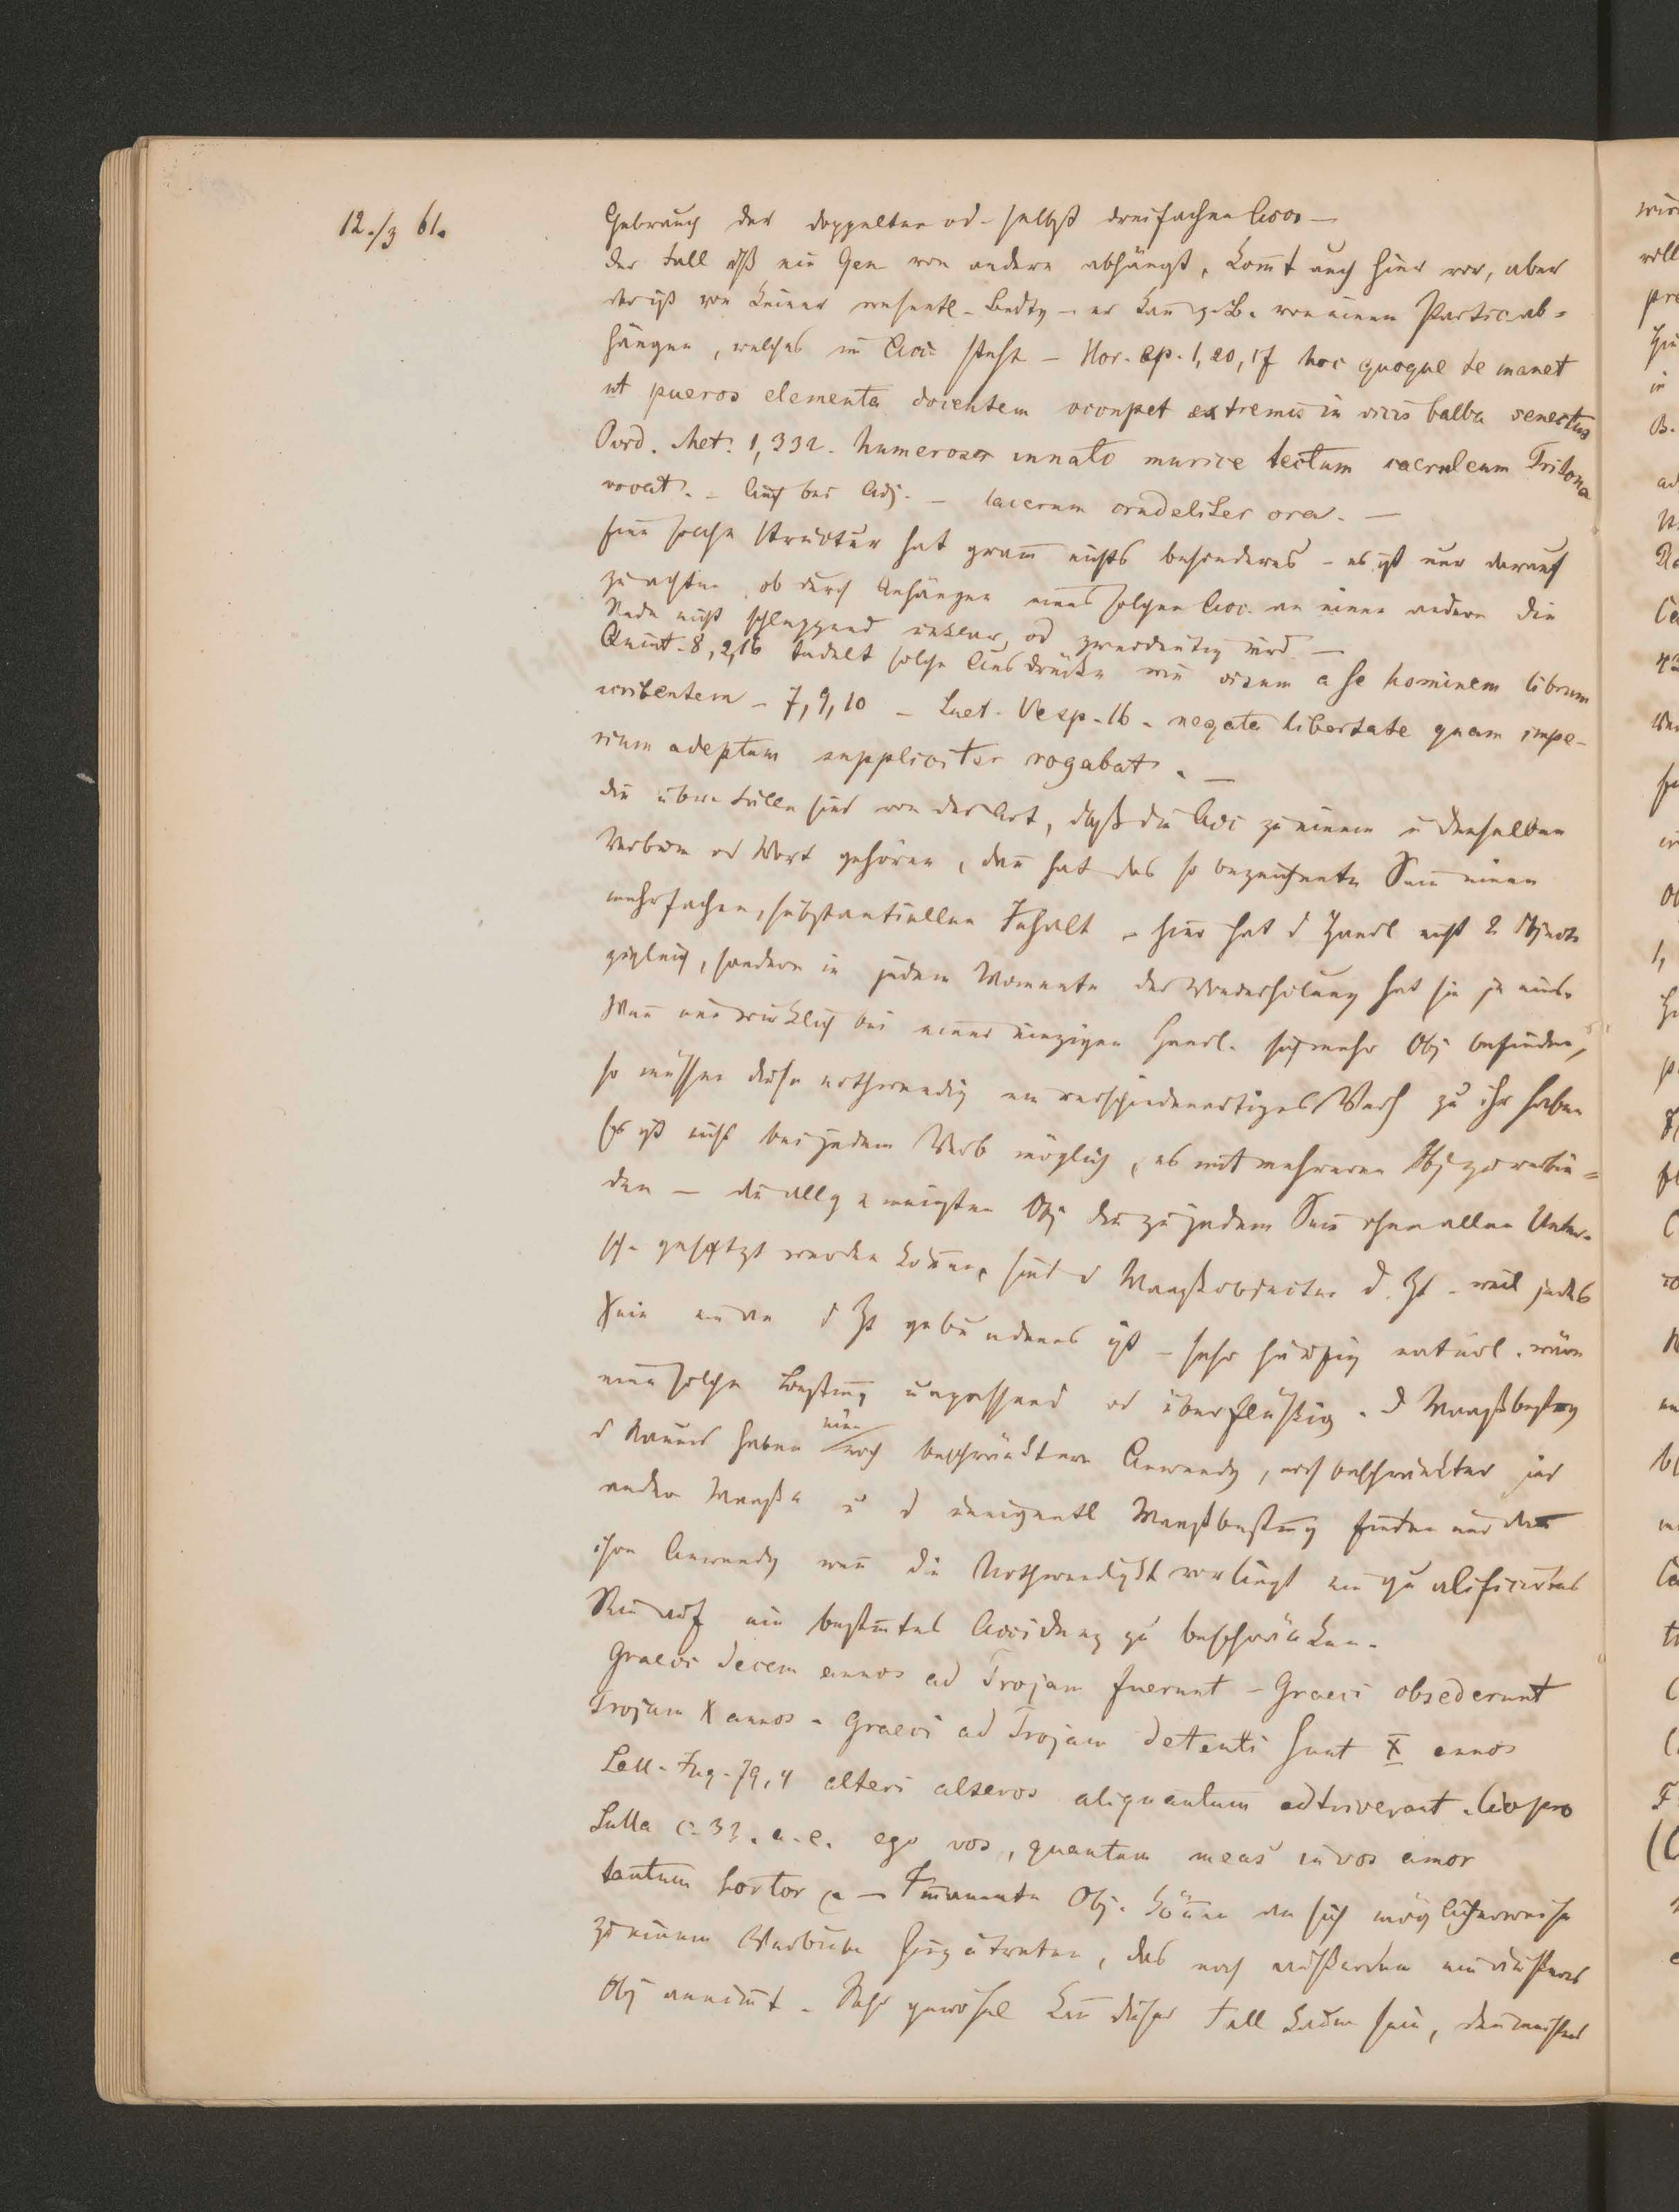 12./3 61.
Gebrauch des doppelten od. selbst dreifachen Accus —
Der Fall dß ein Gen von andern abhängt, kom̄t auch hier vor, aber
der ist von keiner wesentl. Bedtg — er kan̄ z. B. von einem Partic ab=
hängen, welches im Acc steht — Hor. ep. 1, 20, 17 hoc quoque te manet
ut pueros elementa docentem occupet extremis in vicis balba senectus
Ovid. Met. 1, 332. humeros innato murice tectum caeruleum Tritona
vocat. — Auch bei Adj. — lacerum crudeliter ora. —
Eine solche Structur hat gram̄ nichts besonderes — es ist nur darauf
zu achten, ob durch Anhängen eines solchen Acc. an einen andern die
Rede nicht schleppend unklar od zweideutig wird —
Quint. 8, 2, 16 tadelt solche Ausdrücke wie visum a se hominem librum
scribentem — 7, 9, 10 — Suet. Vesp. 16 — negata libertate quam impe-
rium adeptum suppliciter rogabat. —
die übrn Fälle sind von der Art, daß die Acc zu einem u demselben
Verbum od Wort gehören, dan̄ hat das so bezeichnete Sein einen
mehrfachen, substantiellen Inhalt — hier hat d Handl nicht 2 Objecte
zugleich, sondern in jedem Momente der Wiederholung hat sie je eins.
Wen̄ nun wirklich bei einer einzigen Handl. sich mehr Obj befinden,
so müssen diese nothwendig ein verschiedenartiges Verh zu ihr haben
Es ist nicht bei jedem Verb möglich, es mit mehreren Obj zu verbin=
den — die allgemeinsten Obj die zu jedem Sein ohne allen Unter-
sch. gesetzt werden kön̄en, sind d Maaßobjecte d. Zt — weil jedes
Sein ein an d Zt gebundenes ist — sehr häufig natürl. wäre
eine solche Bestim̄g unpassend od überflüßig. D Maaßbestg
d Raums haben nur noch beschränktere Anwendg, noch beschränkter sind
andre Maaße u d uneigentl Maaßbestim̄g finden nur dan̄
ihre Anwendg wen̄ die Nothwendigkt vorliegt ein qualificirtes
Sein auf ein bestim̄tes Accidenz zu beschränken.
Graeci decem annos ad Trojam fuerunt — Graeci obsederunt
Trojam X annos — Graeci ad Trojam detenti sunt X annos
Sall. Jug. 79, 4 alteri alteros aliquantum adtriverant. Cic pro
Sulla c. 31. a. e. ego vos, quantum meus in vos amor
tantum hortor — Im̄anente Obj. kön̄en an sich möglicherweise
zu einem Verbum hinzutreten, das noch außerdem ein äußeres
Obj an̄im̄t. Sehr gewöhnl kan̄ dieser Fall kaum sein, den̄ meistens